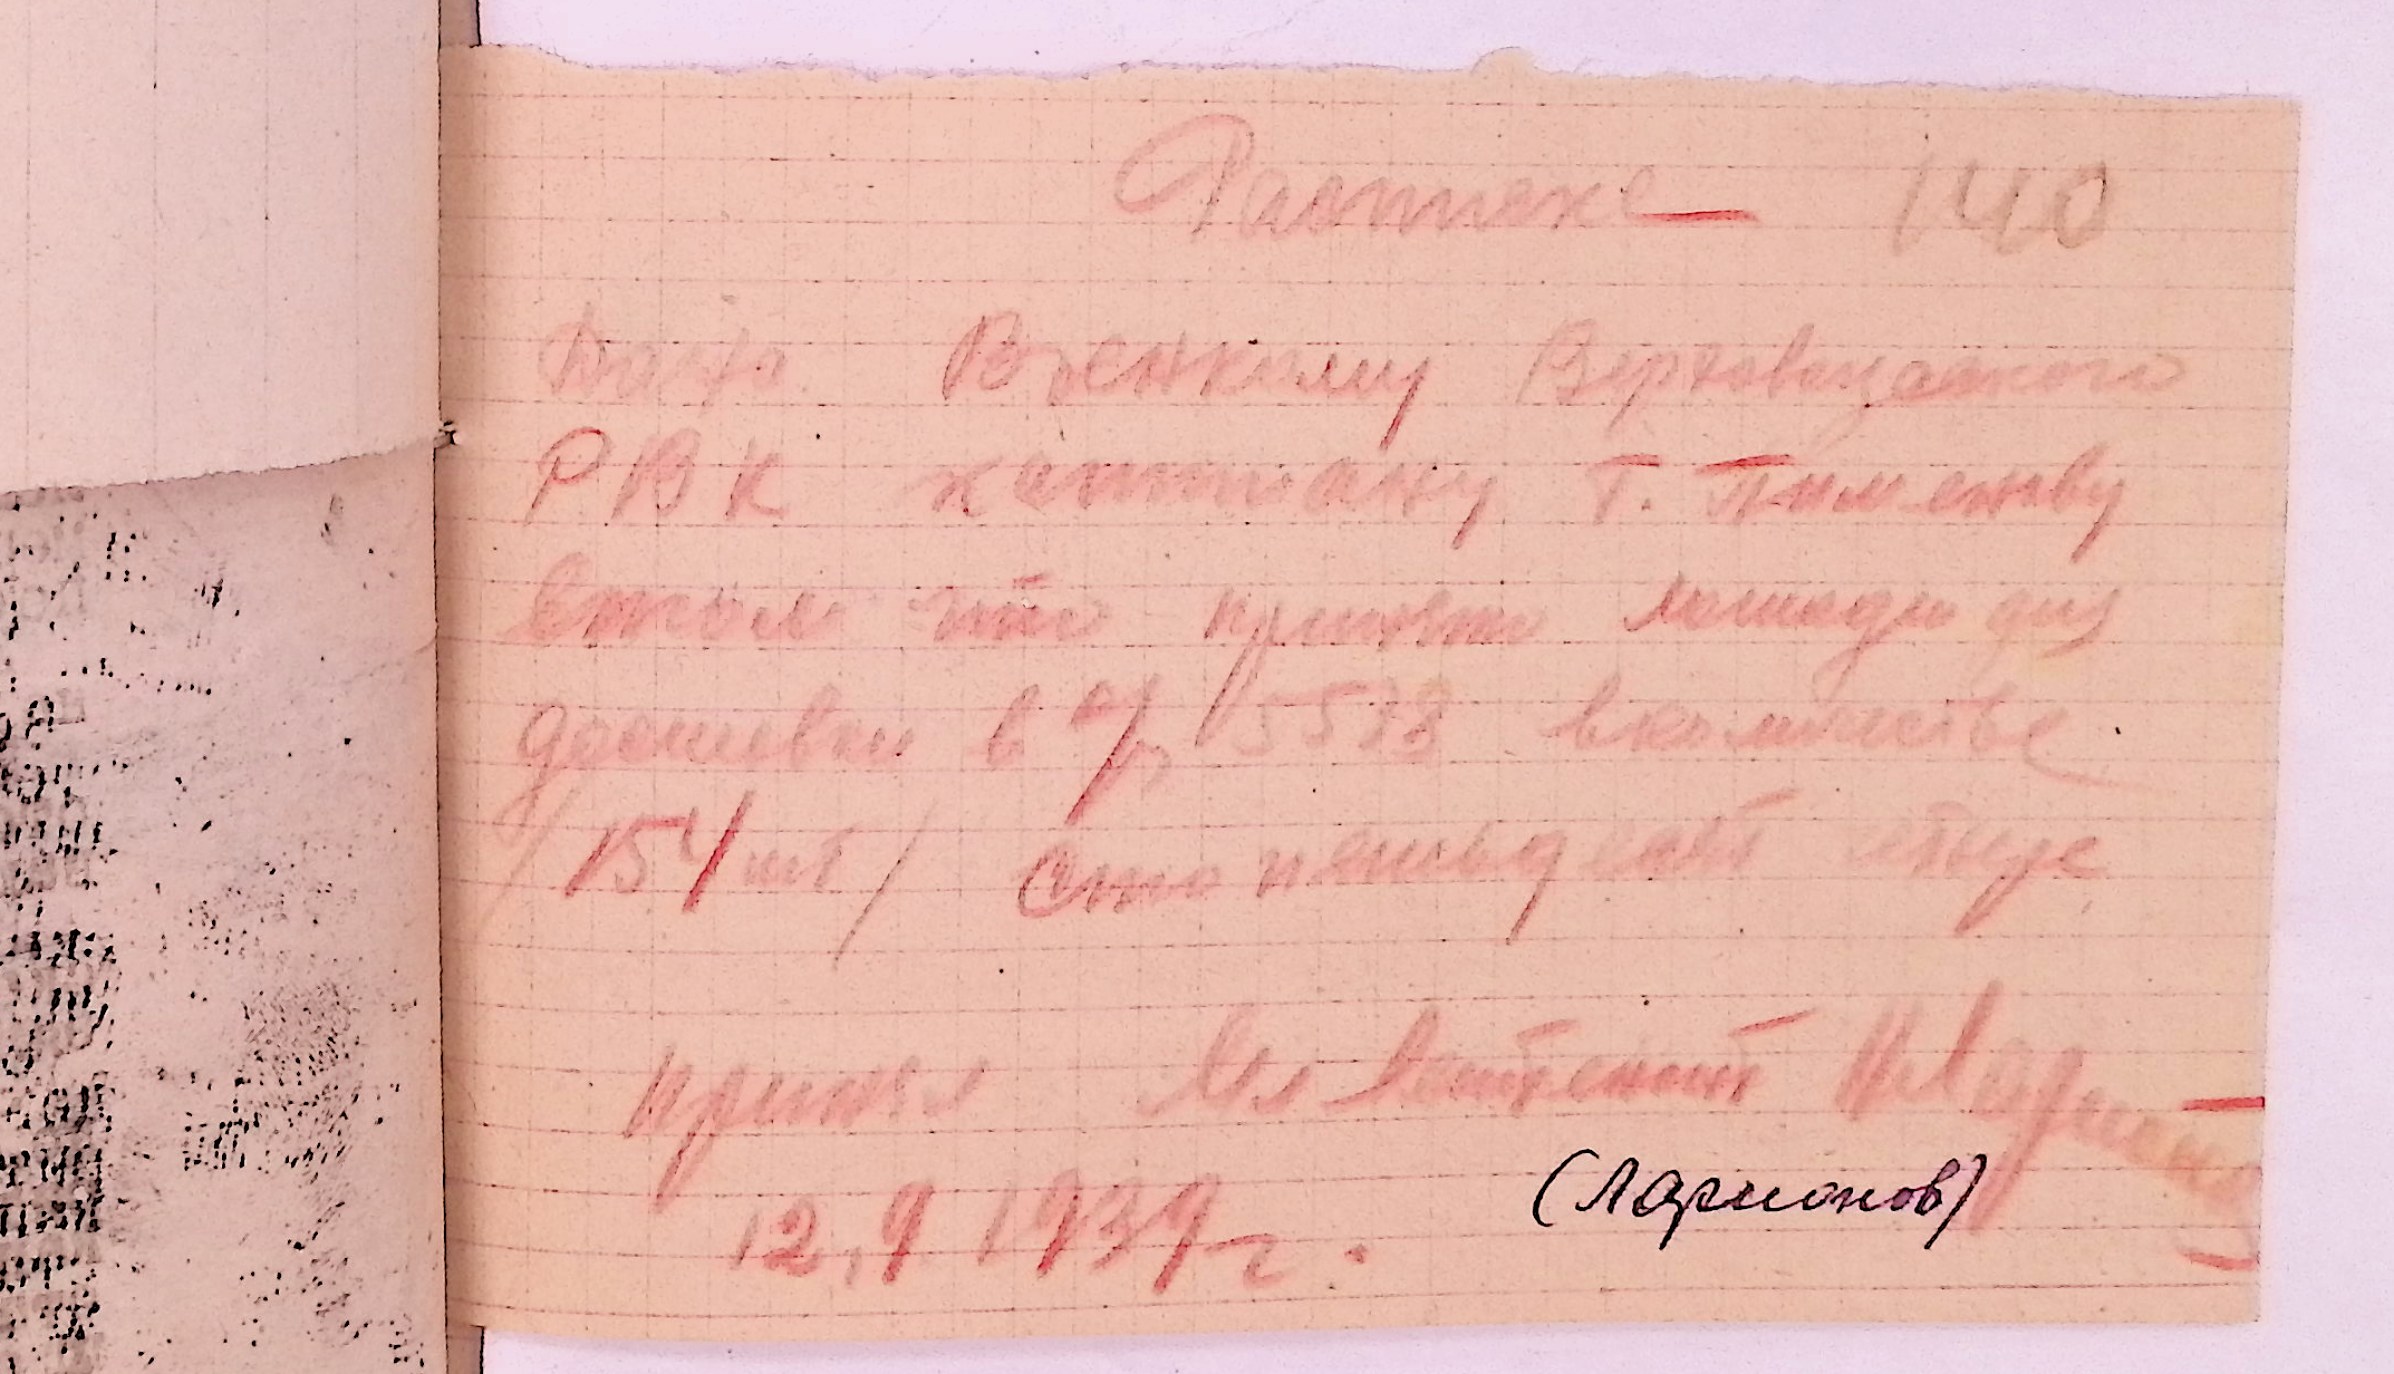 Расписка 140
Дана Военкому Верховажского
РВК капитану т. Пименову
втом что принято лошади для
доставки в в/ч 5578 вколичестве
/154 шт/ сто пятьдесят четыре
принял Мл Лейтенант Ларионов
(Ларионов)
12,9 1939г.